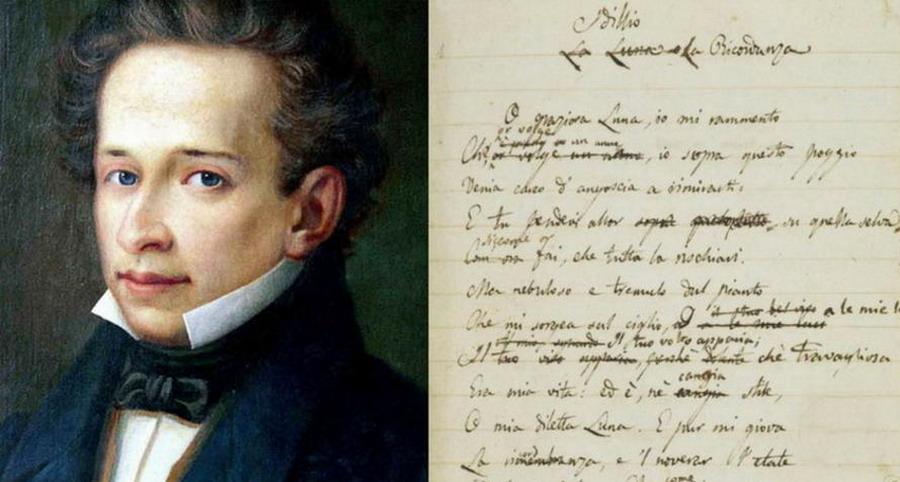 Idillio
La Luna o la Ricordanza
O graziosa Luna, io mi rammento
or volge
Che, or volge un anno, io sopra questo poggio
Venia carco d'angoscia a rimirarti:
E tu pendevi allor sopra su quella selva
Siccome or
Com ora fai, che tutta la rischiari.
Ma nebuloso e tremulo dal pianto
Che mi sorgea sul ciglio, a le mie luci a le mie l
Il tuo volto apparia;
tuo viso apparia, perchè chè travagliosa
cangia
Era mia vita: ed è, nè cangia stile,
O mia diletta Luna. E pur mi giova
La rimembranza, e 'l noverar l'etate
come